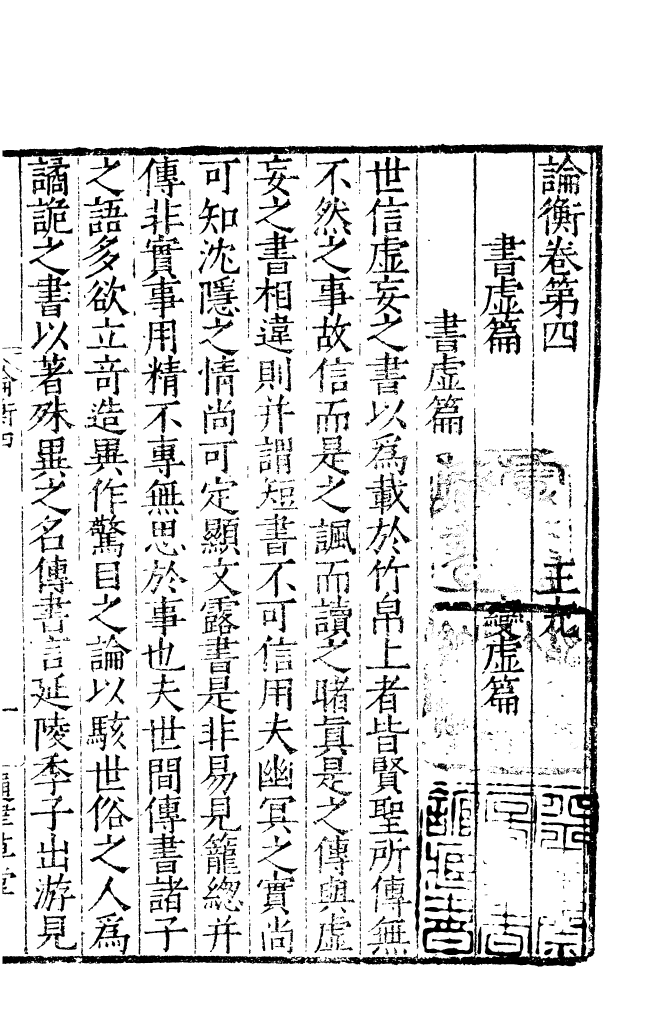 論衡卷第四
王充
書虛篇　變虛篇
書虛篇
世信虛妄之書以爲載於竹帛上者皆賢聖所傳無
不然之事故信而是之諷而讀之睹眞是之傳與虛
妄之書相違則并謂短書不可信用夫幽冥之實尚
可知沈隱之情尚可定顯文露書是非易見籠總并
傳非實事用精不專無思於事也夫世間傳書諸子
之語多欲立奇造異作驚目之論以駭世俗之人爲
譎詭之書以著殊異之名傳書言延陵季子出游見